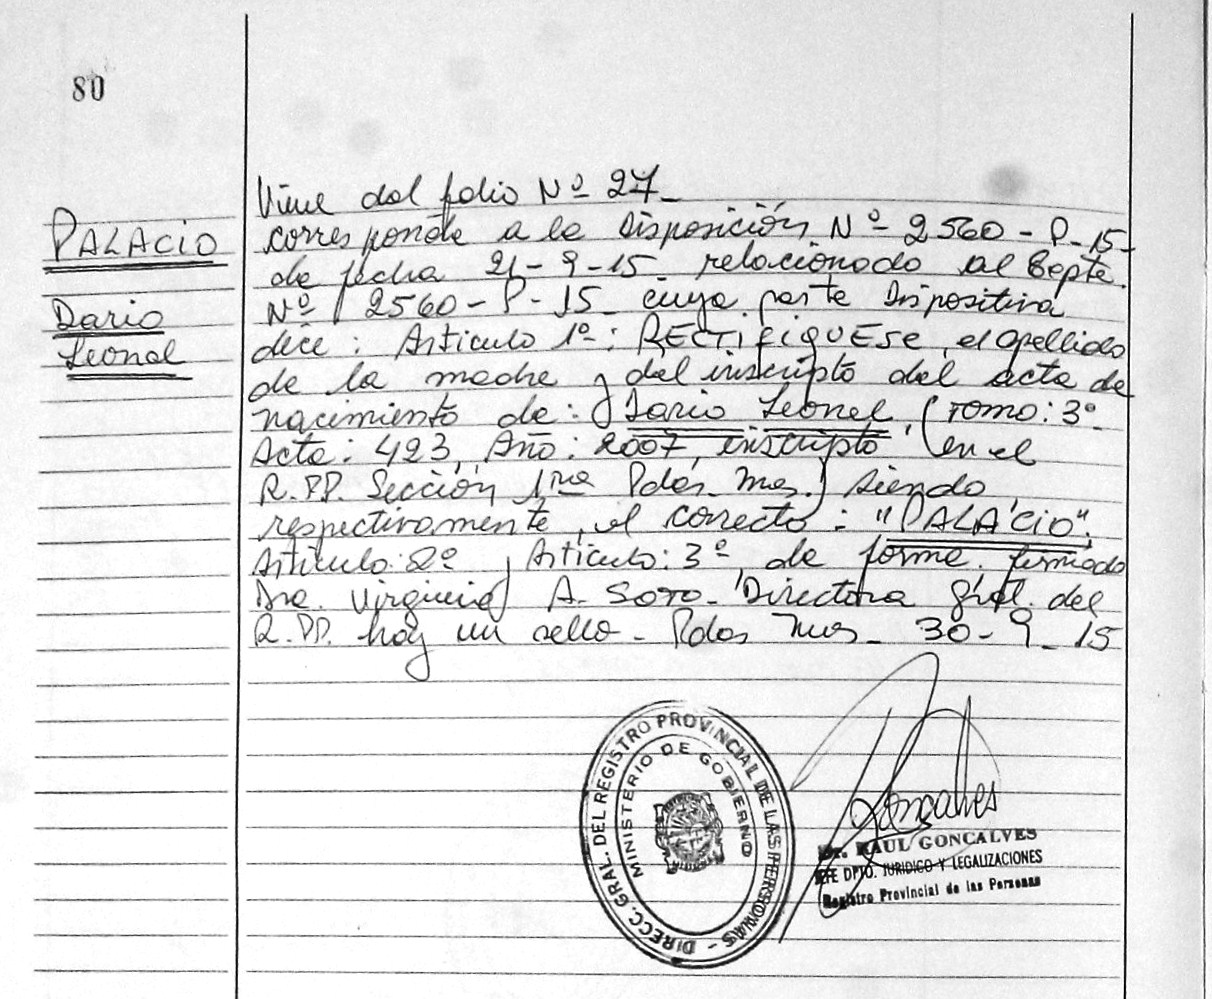 80
PALACIO
Dario
Leonel
Viene del folio Nº 27_
corresponde a la Disposición Nº 2560-P-15-
de fecha 21-9-15 relacionado al Expte.
Nº 2560-P-15 cuya parte Dispositiva
dice: Articulo 1º: RECTIFIQUESE, el apellido
de la madre y del inscripto del acta de
nacimiento de: Dario Leonel, (Tomo: 3º
Acta: 423, Año: 2007, inscripto en el
R.PP. Sección 1ra Pdas. Mnes.) siendo
respectivamente, el correcto: "PALACIO".
Articulo: 2º y Articulo: 3º de forma. firmado
Dra. Virginia A. Soto - Directora Gral. del
R.PP. hay un sello - Pdas Mnes - 30-9-15
DIRECC. GRAL. DEL REGISTRO PROVINCIAL DE LAS PERSONAS -
MINISTERIO DE GOBIERNO
Goncalves
Dr. RAUL GONCALVES
JEFE DPTO. JURIDICO Y LEGALIZACIONES
Registro Provincial de las Personas